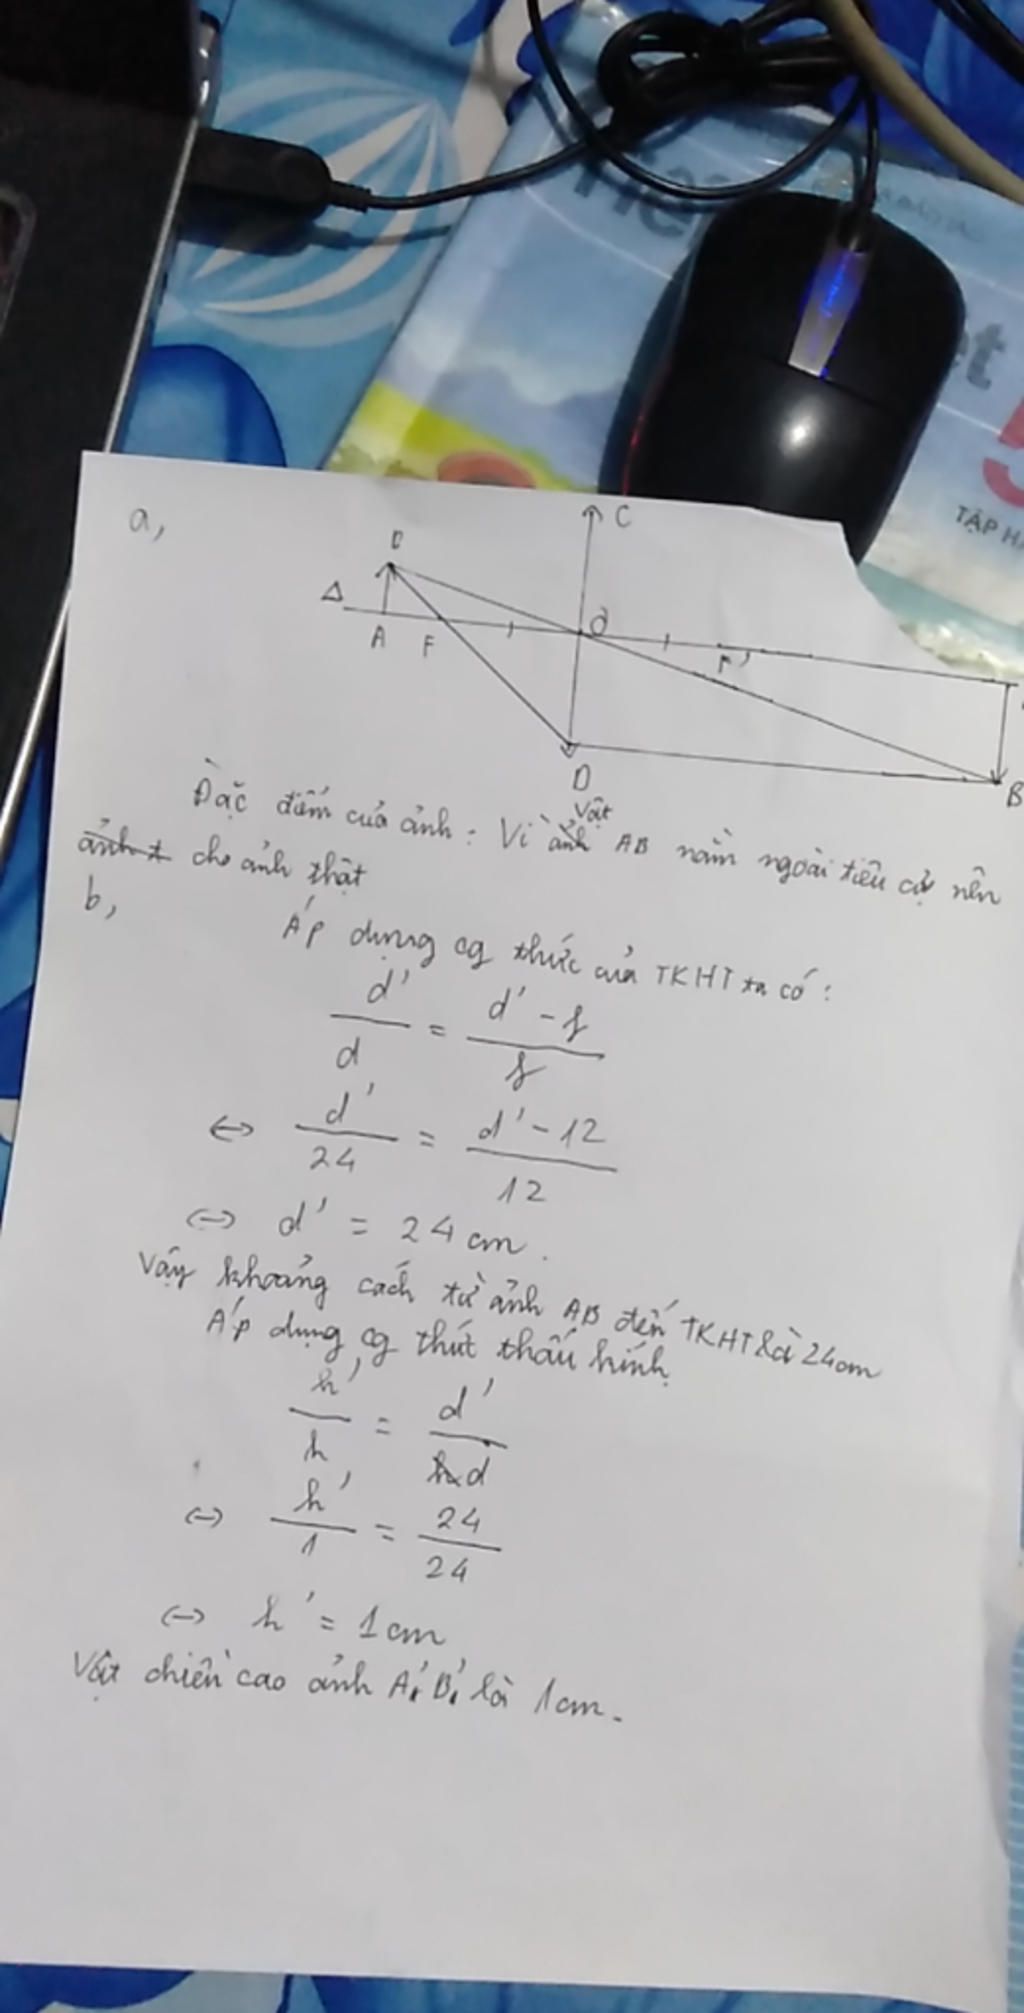 et
5
TẬP HA
a,
C
B
Δ
A
F
O
F'
D
B
Đặc điểm của ảnh: Vì ảnh vật AB nằm ngoài tiêu cự nên
ảnh t cho ảnh thật
b,
Áp dụng cg thức của TKHT ta có:
d'/d = d'-f/f
<=> d'/24 = d'-12/12
<=> d' = 24 cm.
Vậy khoảng cách từ ảnh AB đến TKHT là 24cm
Áp dụng cg thức thấu kính
h'/h = d'/d
<=> h'/1 = 24/24
<=> h' = 1cm
Vật chiều cao ảnh A'B' là 1cm.